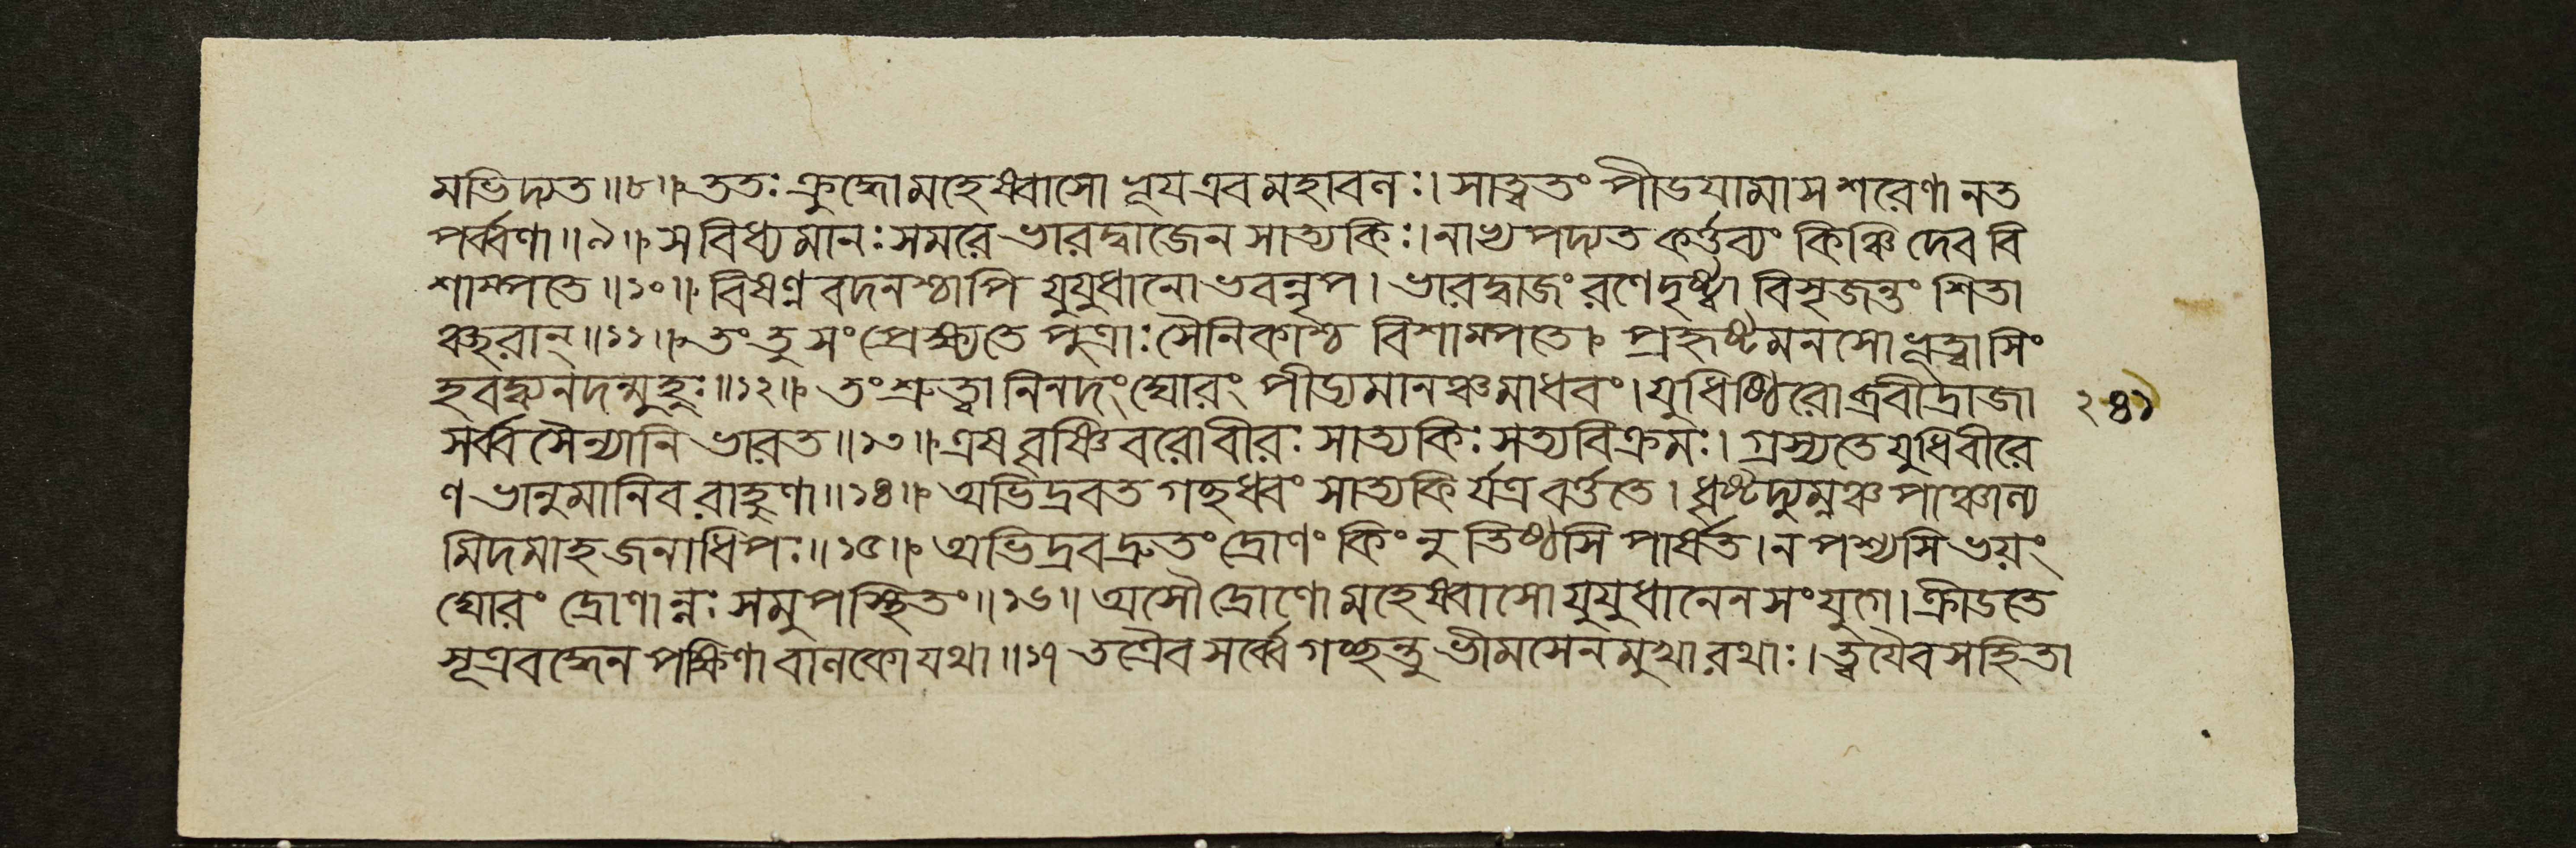 মভিদ্যত॥৮॥ ততঃ ক্রুদ্ধো মহেষ্বাসো ভূয় এব মহাবলঃ। সাত্বতং পীডয়ামাস শরেণানত
পর্ব্বণা॥৯॥ স বিধ্যমানঃ সমরে ভারদ্বাজেন সাত্যকিঃ। নান্বপদ্যত কর্ত্তব্যং কিঞ্চিদেব বি
শাম্পতে॥১০॥ বিষণ্ণবদনশ্চাপি যুযুধানো ভবন্নৃপ। ভারদ্বাজং রণে দৃষ্ট্বা বিসৃজন্তং শিতা
ঞ্ছরান্॥১১॥ তং তু সংপ্রেক্ষ্য তে পুত্রাঃ সৈনিকাশ্চ বিশাম্পতে। প্রহৃষ্টমনসো ভূত্বা সিং
হবদ্ব্যনদন্মুহুঃ॥১২॥ তং শ্রুত্বা নিনদং ঘোরং পীড্যমানঞ্চ মাধবং। যুধিষ্ঠিরো ব্রবীদ্রাজা
সর্ব্বসৈন্যানি ভারত॥১৩॥ এষ বৃষ্ণিবরো বীরঃ সাত্যকিঃ সত্যবিক্রমঃ। গ্রস্যতে যুধি বীরে
ণ ভানুমানিব রাহুণা॥১৪॥ অভিদ্রবত গচ্ছধ্বং সাত্যকির্যত্র বর্ত্ততে। ধৃষ্টদ্যুম্নঞ্চ পাঞ্চাল্য
মিদমাহ জনাধিপঃ॥১৫॥ অভিদ্রব দ্রুতং দ্রোণং কিং নু তিষ্ঠসি পার্ষত। ন পশ্যসি ভয়ং
ঘোরং দ্রোণান্নঃ সমুপস্থিতং॥১৬॥ অসৌ দ্রোণো মহেষ্বাসো যুযুধানেন সংযুগে। ক্রীডতে
সূত্রবদ্ধেন পক্ষিণা বালকো যথা॥১৭ তত্রৈব সর্ব্বে গচ্ছন্তু ভীমসেনমুখা রথাঃ। ত্বয়ৈব সহিতা
২৪১